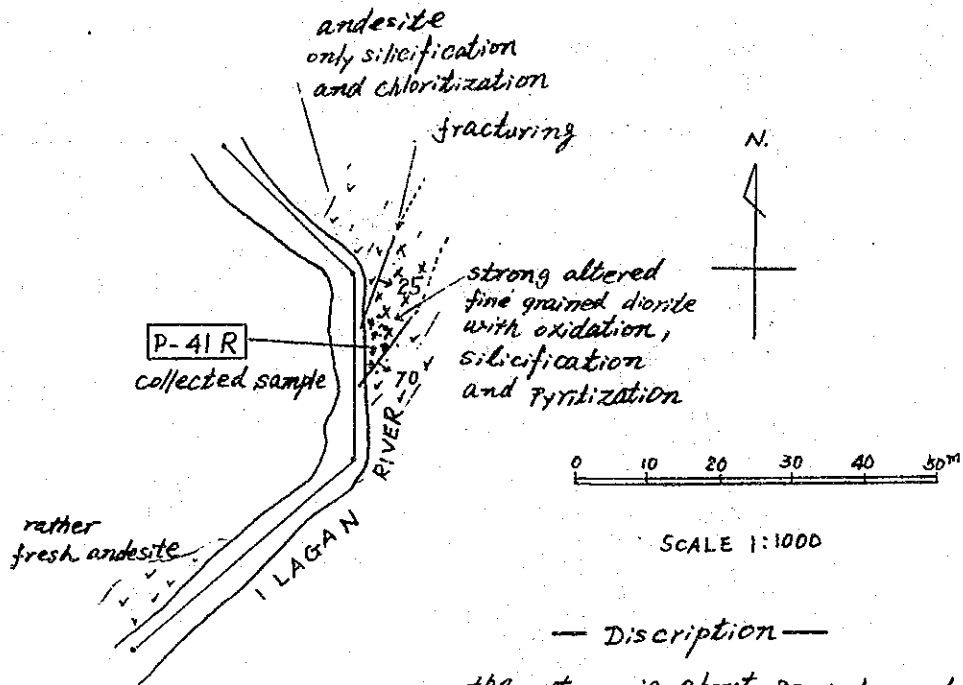 andesite
only silicification
and chloritization
fracturing
N.
25
strong altered
fine grained diorite
with oxidation,
silicification
and Pyritization
P-41 R
collected sample
70
I LAGAN RIVER
rather
fresh andesite
0 10 20 30 40 50m
SCALE 1:1000
— Discription —
the is about